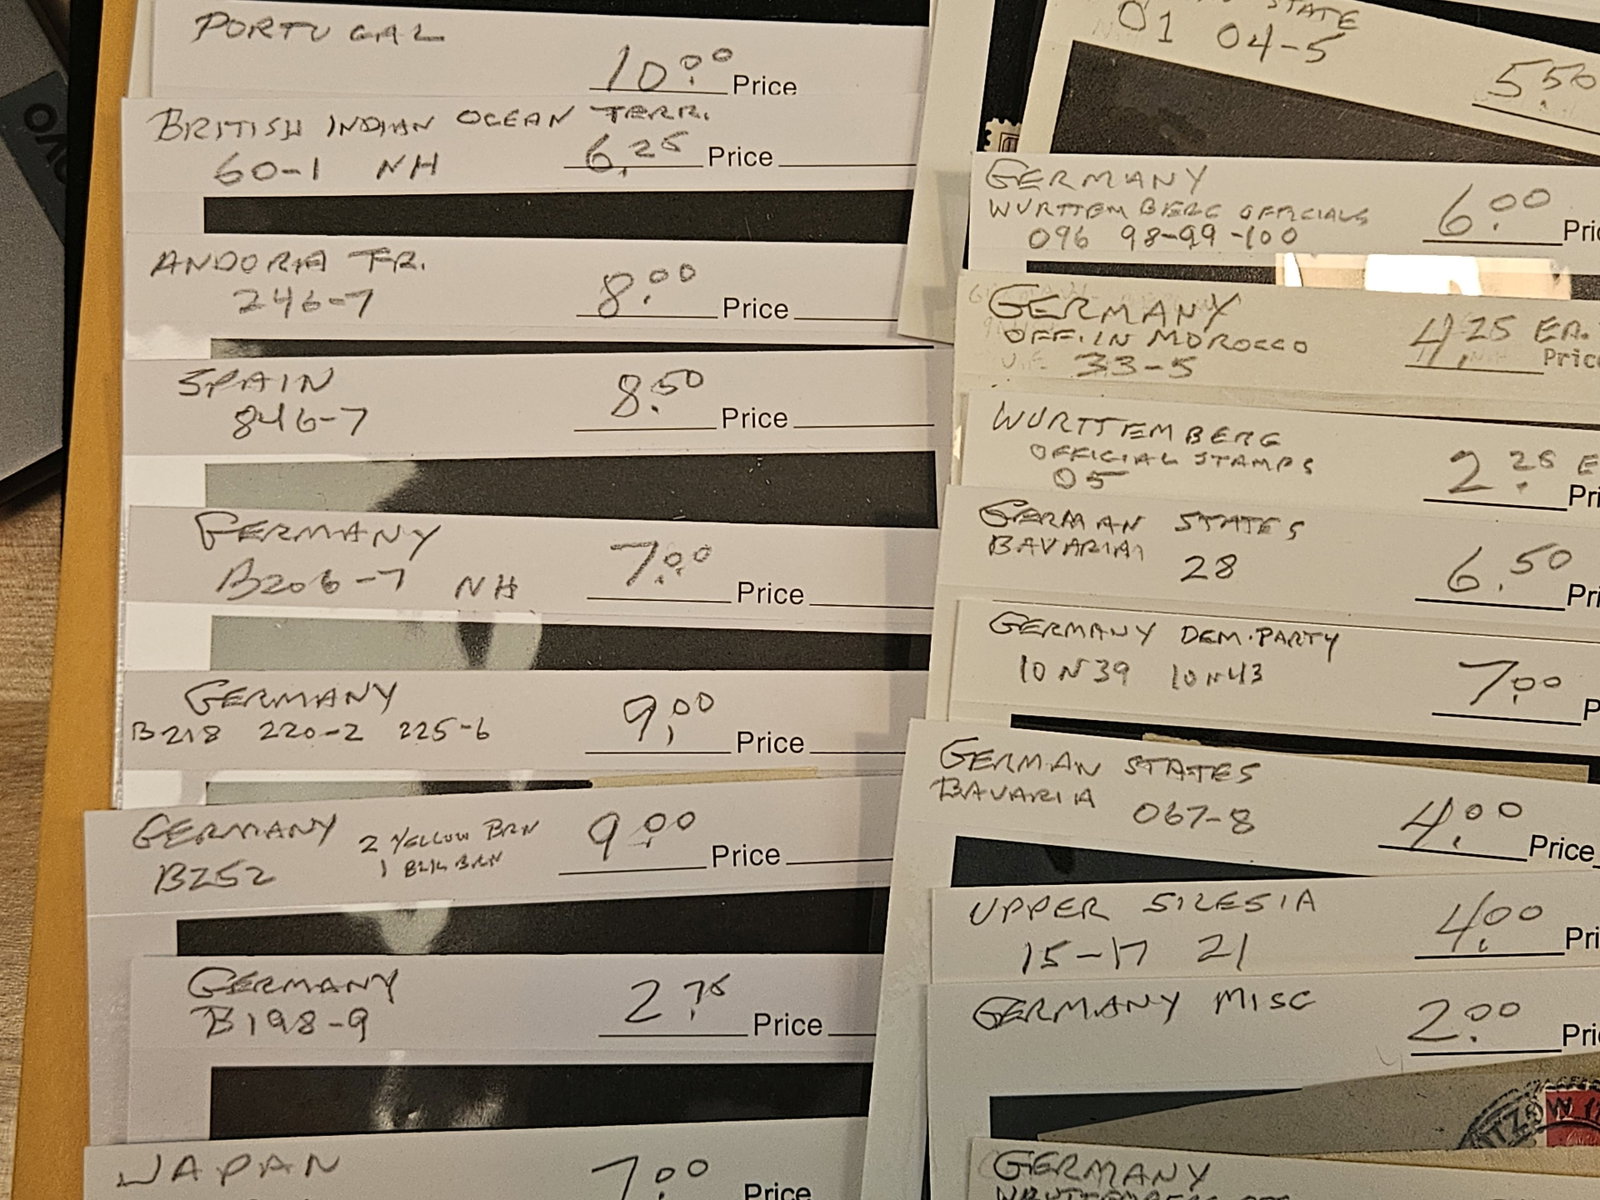 PORTUGAL
10.00 Price
BRITISH INDIAN OCEAN TERR.
60-1 NH 6.25 Price
ANDORRA FR.
246-7 8.00 Price
SPAIN
846-7 8.50 Price
GERMANY
B206-7 NH 7.00 Price
GERMANY
B218 220-2 225-6 9.00 Price
GERMANY 2 YELLOW BRN
B252 1 BLK BRN 9.00 Price
GERMANY
B198-9 2.75 Price
JAPAN 7.00 Price
STATE
01 04-5 5.50
GERMANY
WURTTEMBERG OFFICIALS 6.00
096 98-99-100
GERMANY
OFF. IN MOROCCO 4.25 EA.
33-5 Price
WURTTEMBERG
OFFICIAL STAMPS 2.25
05
GERMAN STATES
BAVARIA
28 6.50
GERMANY DEM. PARTY
10N39 10N43 7.00
GERMAN STATES
BAVARIA 067-8 4.00 Price
UPPER SILESIA
15-17 21 4.00
GERMANY MISC 2.00
GERMANY